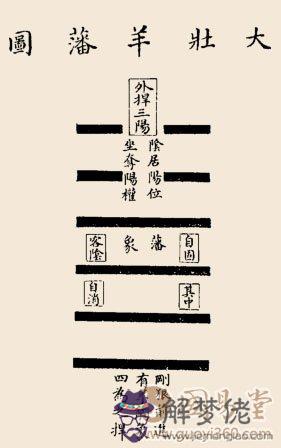 大壯羊藩圖
外捍三陽
陰居陽位
坐奪陽權
自固
藩
象
客陰
其中
自消
剛狠
有
四為
捍
解梦佬
www.jiemenglao.com